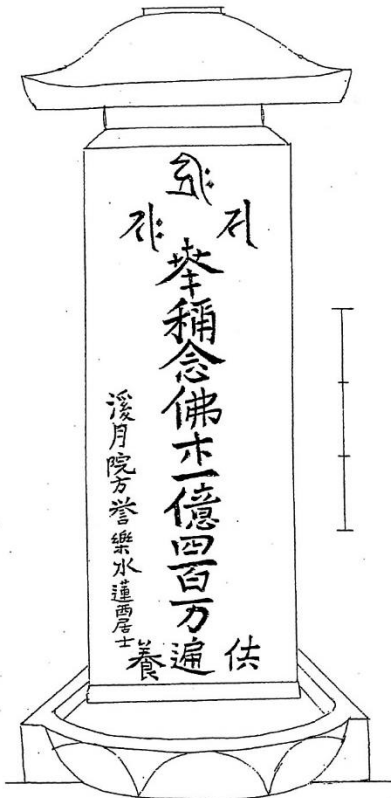 𑖮𑖿𑖨𑖱𑖾
𑖭
𑖭𑖾
奉稱念佛朩一億四百万遍
供養
溪月院方誉樂水蓮西居士